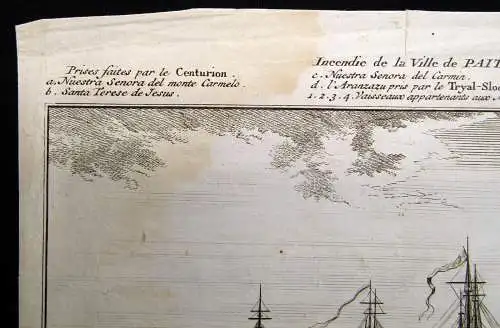 Prises faites par le Centurion.
a. Nuestra Senora del monte Carmelo.
b. Santa Terese de Jesus.
Incendie de la Ville de
c. Nuestra Senora del Carmin.
d. l'Aranzazu pris par le Tryal
1. 2. 3. 4. Vaisseaux appartenants aux